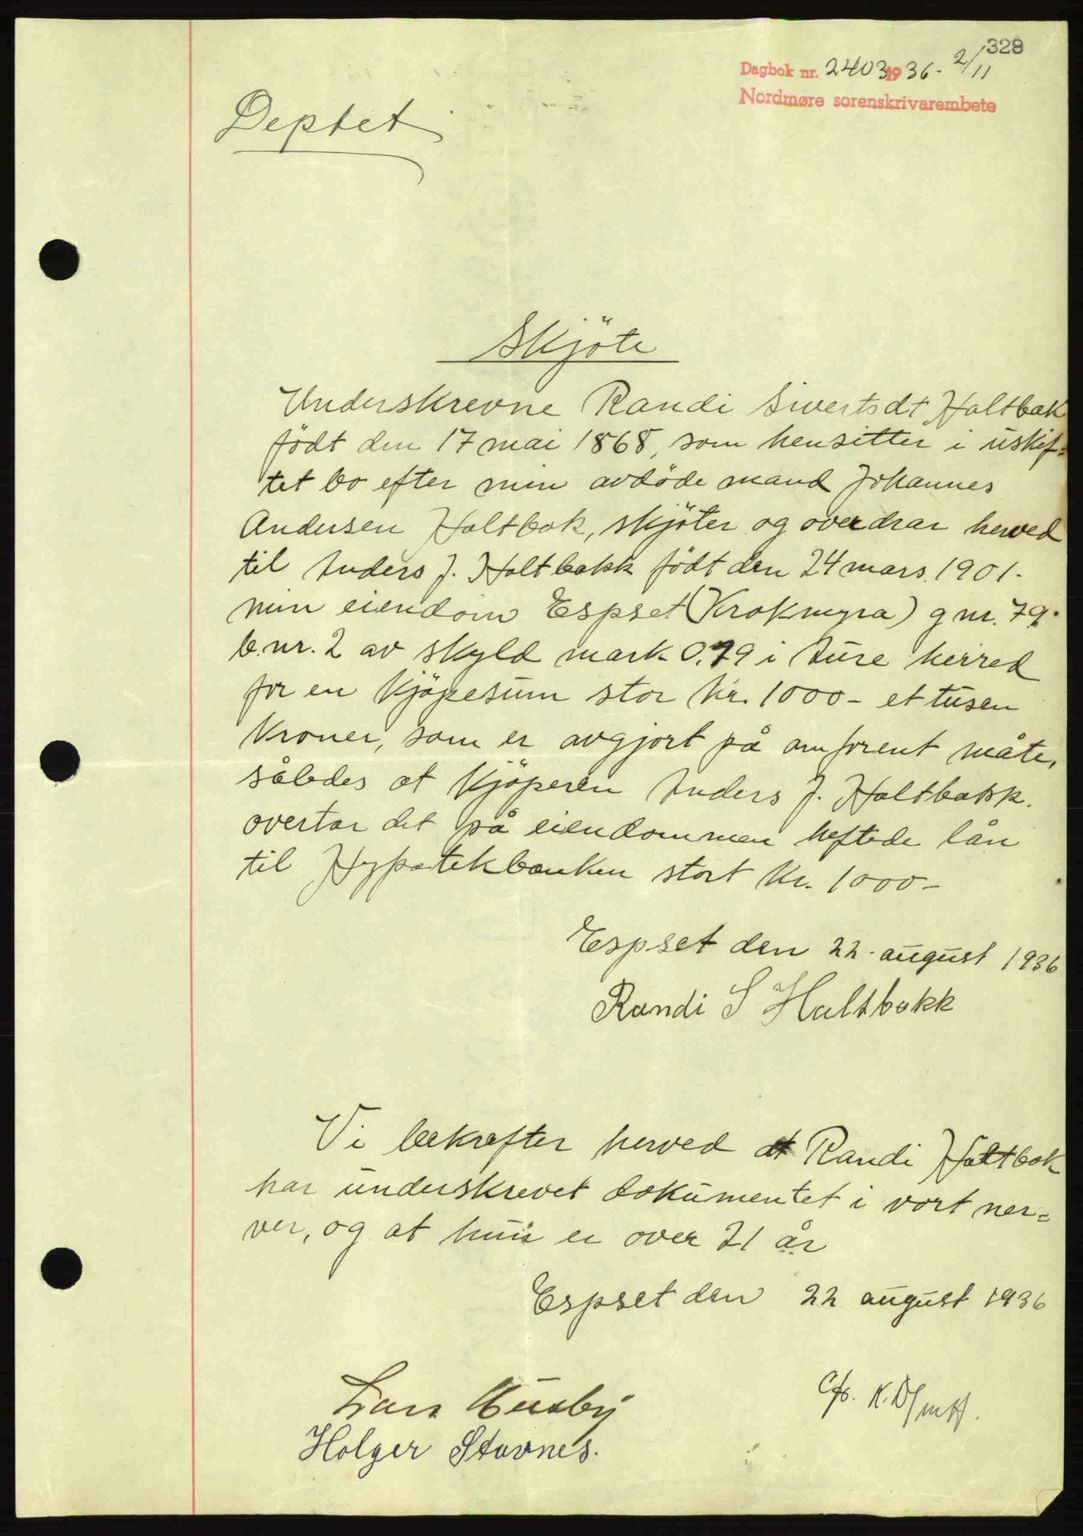 328
Dagbok nr. 2403 1936 - 2/11
Nordmøre sorenskrivarembete
Deptet
Skjöte
Underskrevne Randi Sivertsdt Haltbak
födt den 17 mai 1868, som hensitter i uskif=
tet bo efter min avdöde mand Johannes
Andersen Haltbak, skjöter og overdrar herved
til Anders J. Haltbakk födt den 24 mars 1901.
min eiendom Espset (Krokmyra) g nr. 79.
b.nr. 2 av skyld mark 0.79 i Aure herred
for en kjöpesum stor kr. 1000 - et tusen
kroner, som er avgjort på omforent måte,
således at kjöperen Anders J. Haltbakk.
overtar det på eiendommen heftede lån
til Hypotekbanken stort kr. 1000 -
Espset den 22 august 1936
Randi S Haltbakk
Vi bekrefter herved at Randi Haltbak
har underskrevet dokumentet i vort ner=
ver, og at hun er over 21 år
Espset den 22 august 1936
Lars Husby
Holger Stavnes.